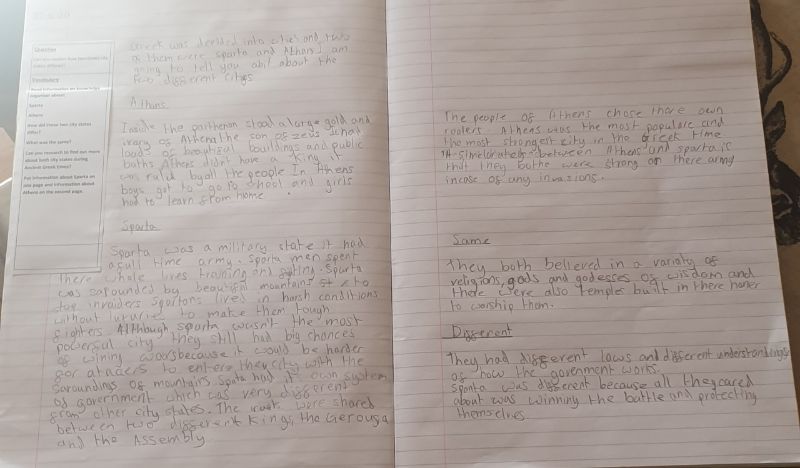 Question
Vocabulary
Sparta
Athens
How did these two city states
differ?
What was the same?
Can you research to find out more
about both city states during
Ancient Greek times?
Put information about Sparta on
one page and information about
Athens on the second page.
Greek was devided into cities and two
of them were sparta and Athans I am
going to tell you abit about the
two different citys
Athans
Inside the parthenon stood a large gold and
ivory of Athena the son of zeus it had
loads of beautiful bouildings and public
baths Athens didn't have a King it
was ruled by all the people In Athens
boys got to go to school and girls
had to learn from home.
Sparta
Sparta was a military state it had
a full time army. Sparta men spent
There whole lives training and fighting. Sparta
was sarounded by beautiful mountains to
stop invaders Spartans lives in harsh conditions
without luxuries to make them tough
fighters. Although sparta wasn't the most
powersal city they still had big chances
of wining because it would be harder
for atacers to enter the city with the
saroundings of mountains. Spata had it own system
of government which was very different
from other city states. The were shared
between two different Kings, the Gerousa
and the Assembly
The people of Athens chose there own
roolers. Athens was the most populare and
the most strongest city in the Greek time
between Athens and sparta is
that they bothe were strong on there army
incase of any invasions.
Same
They both believed in a variaty of
religions, gods and godesses of wisdom and
there were also temples built in there honer
to worship them.
Different
They had different laws and different understandings
of how the government works.
Sparta was different because all they cared
about was winning the battle and protecting
themselves.